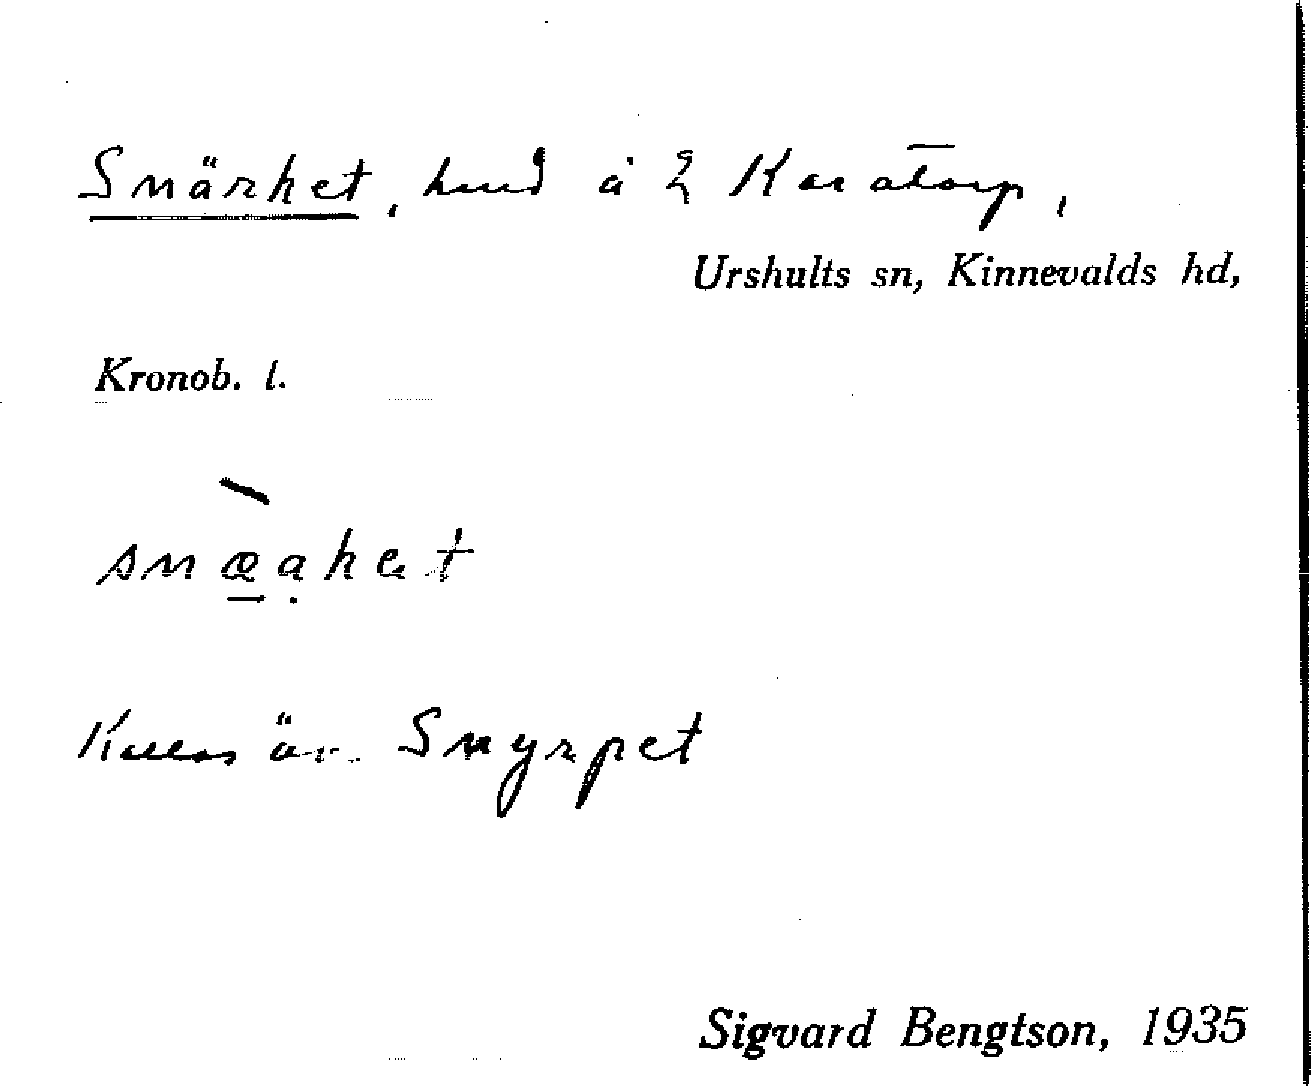 Snärket, lund å 2 Karatorp,
Urshults sn, Kinnevalds hd,
Kronob. l.
snæaket
Kallas äv. Snyrpet
Sigvard Bengtson, 1935